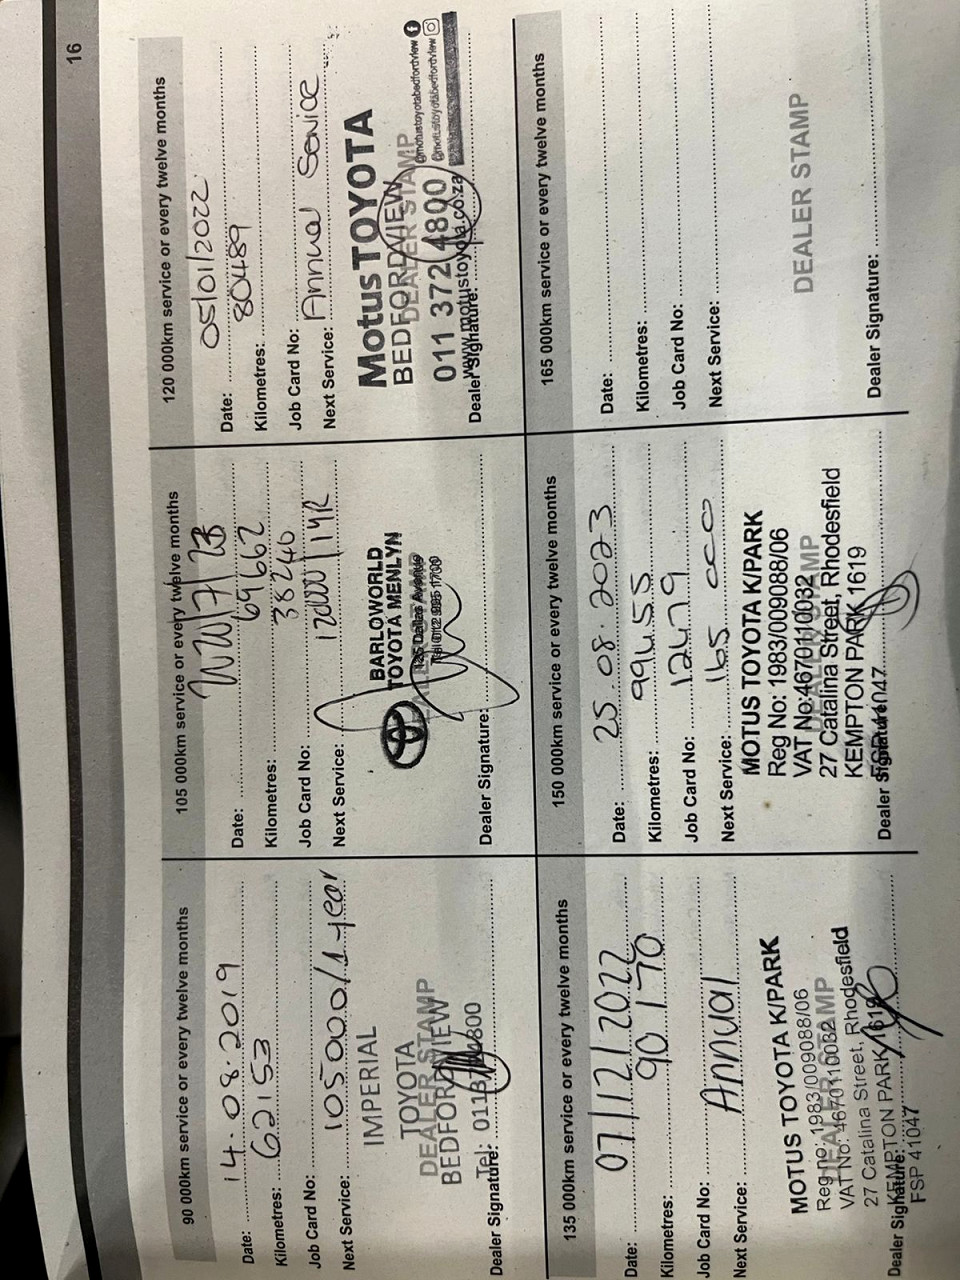 16
90 000km service or every twelve months
Date: 14.08.2019
Kilometres: 62153
Job Card No:
Next Service: 105000/1year
IMPERIAL
TOYOTA
DEALER STAMP
BEDFORDVIEW
Tel: 0113 4800
Dealer Signature:
105 000km service or every twelve months
Date:
Kilometres: 69662
Job Card No: 38240
Next Service: 120000/1YR
BARLOWORLD
TOYOTA MENLYN
125 Dallas Avenue
Dealer Signature:
120 000km service or every twelve months
Date: 05/01/2022
Kilometres: 80489
Job Card No:
Next Service: Annual Service
Motus TOYOTA
BEDFORDVIEW
DEALER STAMP
011 372 4800
@motustoyotabedfordview
@motustoyotabedfordview
www.motustoyota.co.za
Dealer Signature:
135 000km service or every twelve months
Date: 07/12/2022
Kilometres: 90170
Job Card No:
Next Service: Annual
MOTUS TOYOTA K/PARK
Reg no: 1983/009088/06
DEALER STAMP
VAT No: 4670110032
27 Catalina Street, Rhodesfield
KEMPTON PARK 1619
Dealer Signature:
FSP 41047
150 000km service or every twelve months
Date: 25.08.2023
Kilometres: 99455
Job Card No: 12479
Next Service: 165 000
MOTUS TOYOTA K/PARK
Reg No: 1983/0090088/06
VAT No:4670110032
DEALER STAMP
27 Catalina Street, Rhodesfield
KEMPTON PARK 1619
FSP 41047
Dealer Signature:
165 000km service or every twelve months
Date:
Kilometres:
Job Card No:
Next Service:
DEALER STAMP
Dealer Signature: